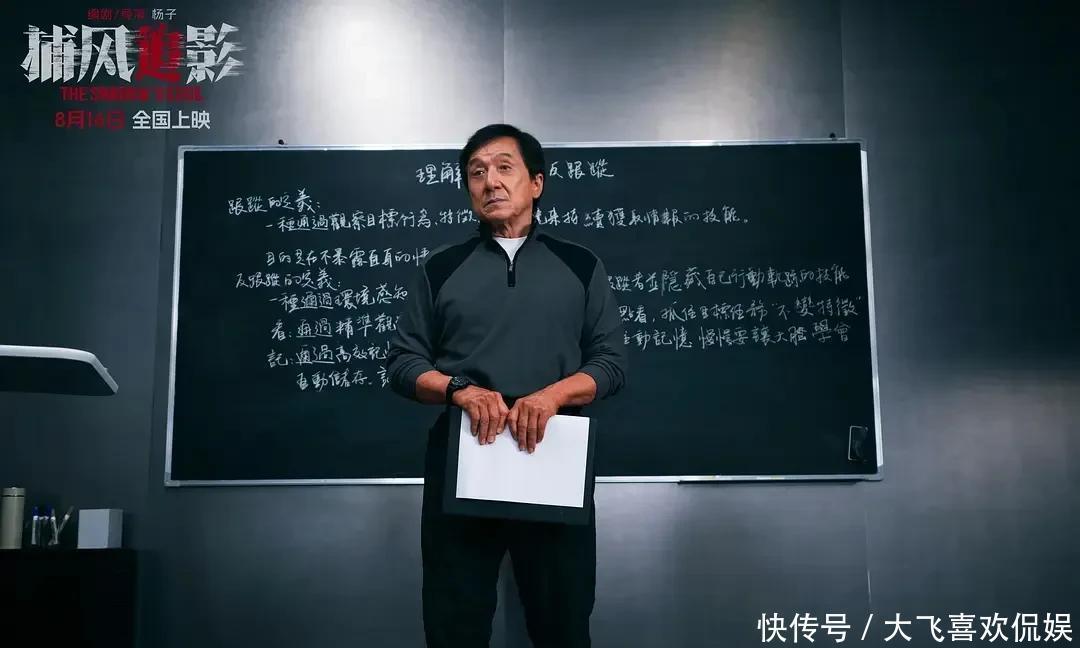 编剧/导演 杨子
捕风追影
THE SHADOW'S EDGE
8月16日 全国上映
理解 反跟蹤
跟蹤的定義：
一種通過觀察目標行為、特徵 來持續獲取情報的技能。
目的是在不暴露自身的情
反跟蹤的定義：
一種通過環境感知 跟蹤者並隱藏自己行動軌跡的技能
看：通過精準觀 點看，抓住目標任務"不變特徵"
記：通過高效記憶 主動記憶 慢慢要讓大腦學會
自動儲存、
快传号 / 大飞喜欢侃娱